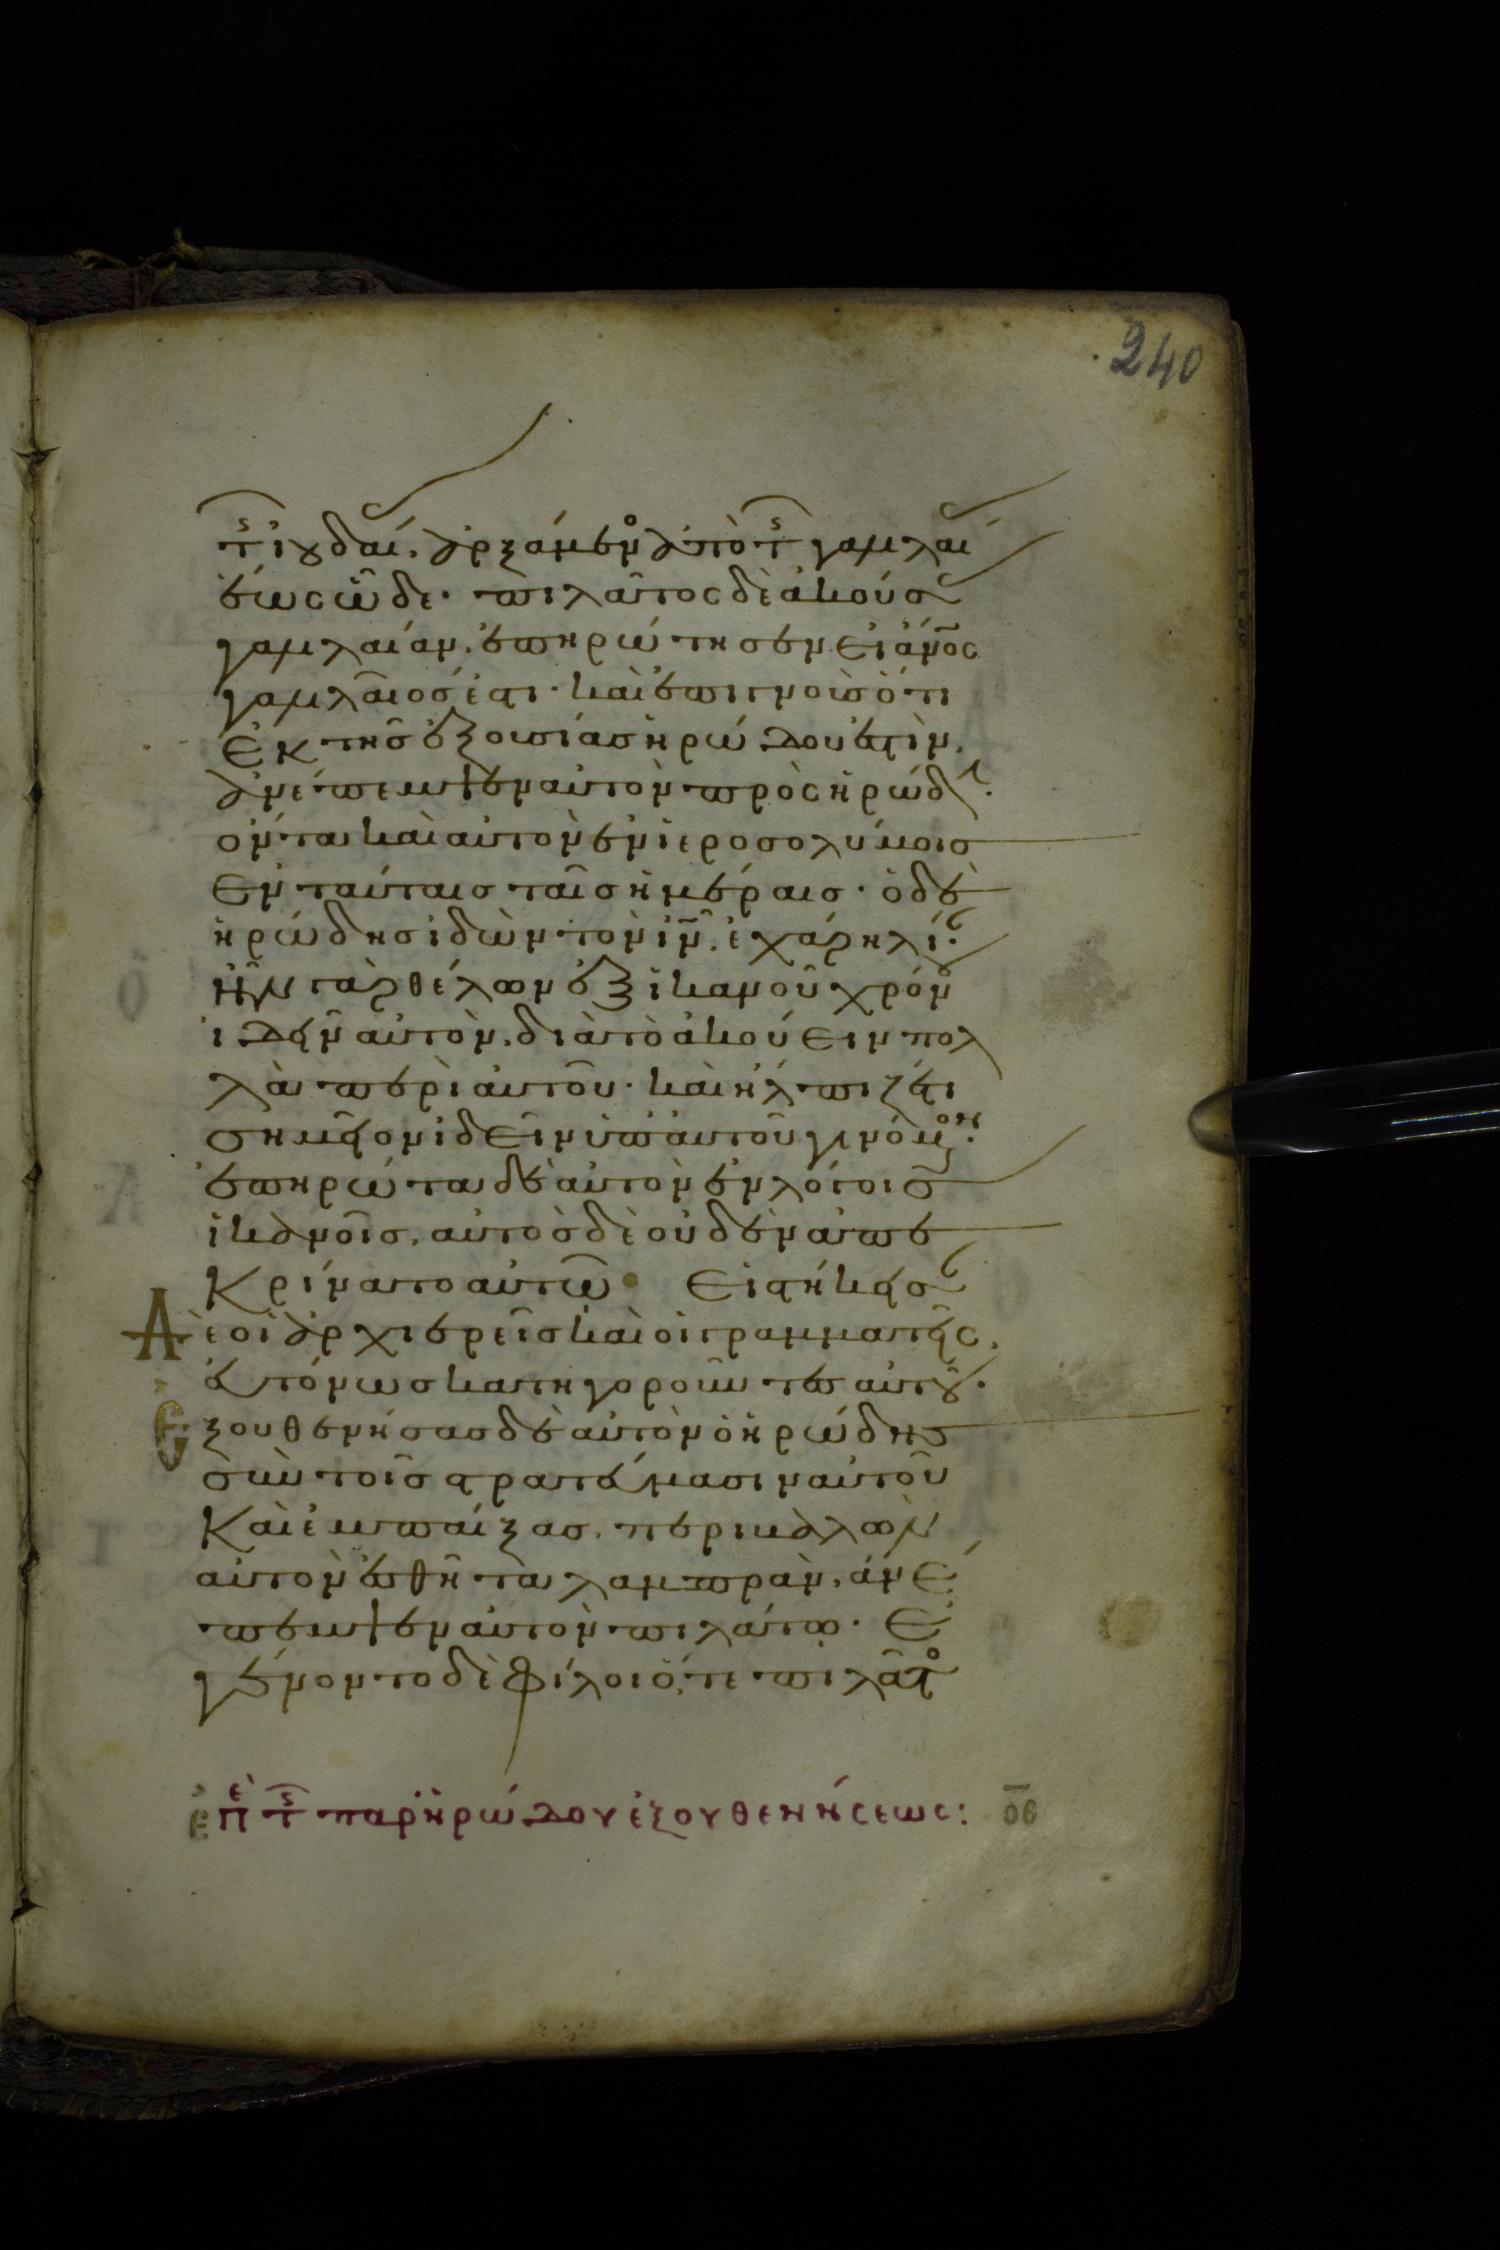 240
τῆς ἰουδαίας, ἀρξάμενος ἀπὸ τῆς γαλιλαίας
ἕως ὧδε· πιλάτος δὲ ἀκούσας
γαλιλαίαν, ἐπηρώτησεν εἰ ὁ ἄνος
γαλιλαῖος ἐστι· καὶ ἐπιγνοὺς ὅτι
ἐκ τῆς ἐξουσίας ἡρώδου ἐστὶν,
ἀνέπεμψεν αὐτὸν πρὸς ἡρώδην·
ὄντα καὶ αὐτὸν ἐν ἱεροσολύμοις
ἐν ταύταις ταῖς ἡμέραις· ὁ δὲ
ἡρώδης ἰδὼν τὸν ιν, ἐχάρη λίαν·
ἦν γὰρ θέλων ἐξ ἱκανοῦ χρόνου
ἰδεῖν αὐτὸν, διὰ τὸ ἀκούειν πολ
λὰ περὶ αὐτοῦ· καὶ ἤλπιζέ τι
σημεῖον ἰδεῖν ὑπ' αὐτοῦ γινόμενον·
ἐπηρώτα δὲ αὐτὸν ἐν λόγοις
ἱκανοῖς, αὐτὸς δὲ οὐδὲν ἀπε
κρίνατο αὐτῶ· εἱστήκεισαν
Δὲ οἱ ἀρχιερεῖς καὶ οἱ γραμματεῖς,
εὐτόνως κατηγοροῦντες αὐτοῦ·
Ἐξουθενήσας δὲ αὐτὸν ὁ ἡρώδης
σὺν τοῖς στρατεύμασιν αὐτοῦ
καὶ ἐμπαίξας, περιβαλὼν
αὐτὸν ἐσθῆτα λαμπρὰν, ἀνέ
πεμψεν αὐτὸν πιλάτω· ἐ
γένοντο δὲ φίλοι ὅ,τε πιλάτος
περὶ τῆς παρ' ἡρώδου ἐξουθενήσεως: